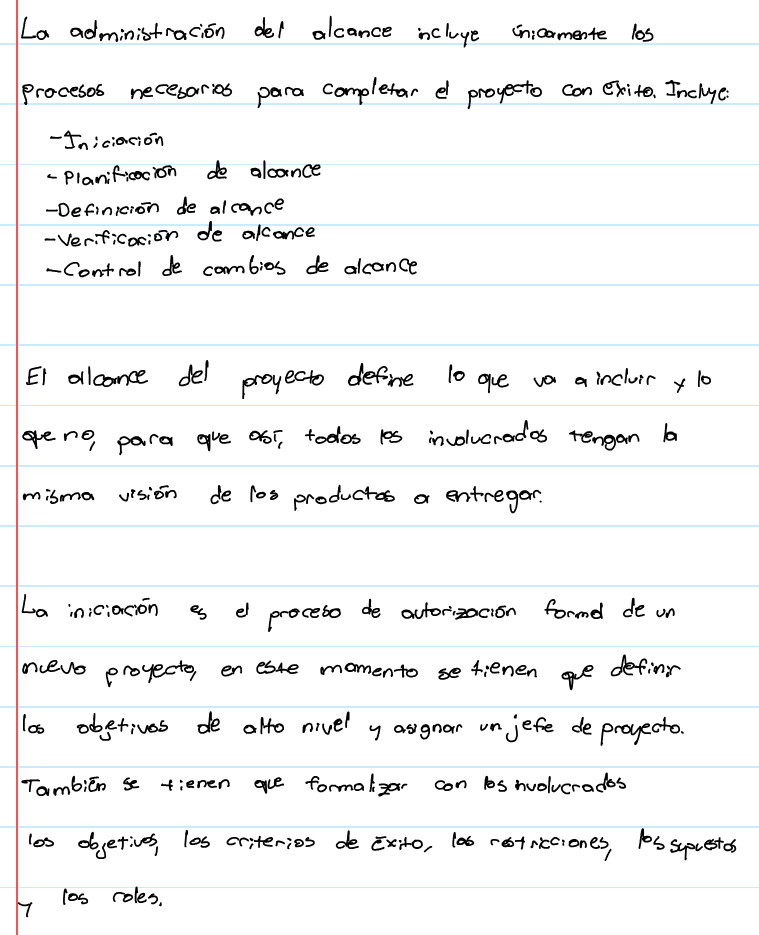 La administración del alcance incluye únicamente los
procesos necesarios para completar el proyecto con éxito. Incluye:
-Iniciación
- Planificación de alcance
-Definición de alcance
-Verificación de alcance
-Control de cambios de alcance
El alcance del proyecto define lo que va a incluir y lo
que no, para que así, todos los involucrados tengan la
misma visión de los productos a entregar.
La iniciación es el proceso de autorización formal de un
nuevo proyecto, en este momento se tienen que definir
los objetivos de alto nivel y asignar un jefe de proyecto.
También se tienen que formalizar con los involucrados
los objetivos, los criterios de éxito, las restricciones, los supuestos
y los roles.